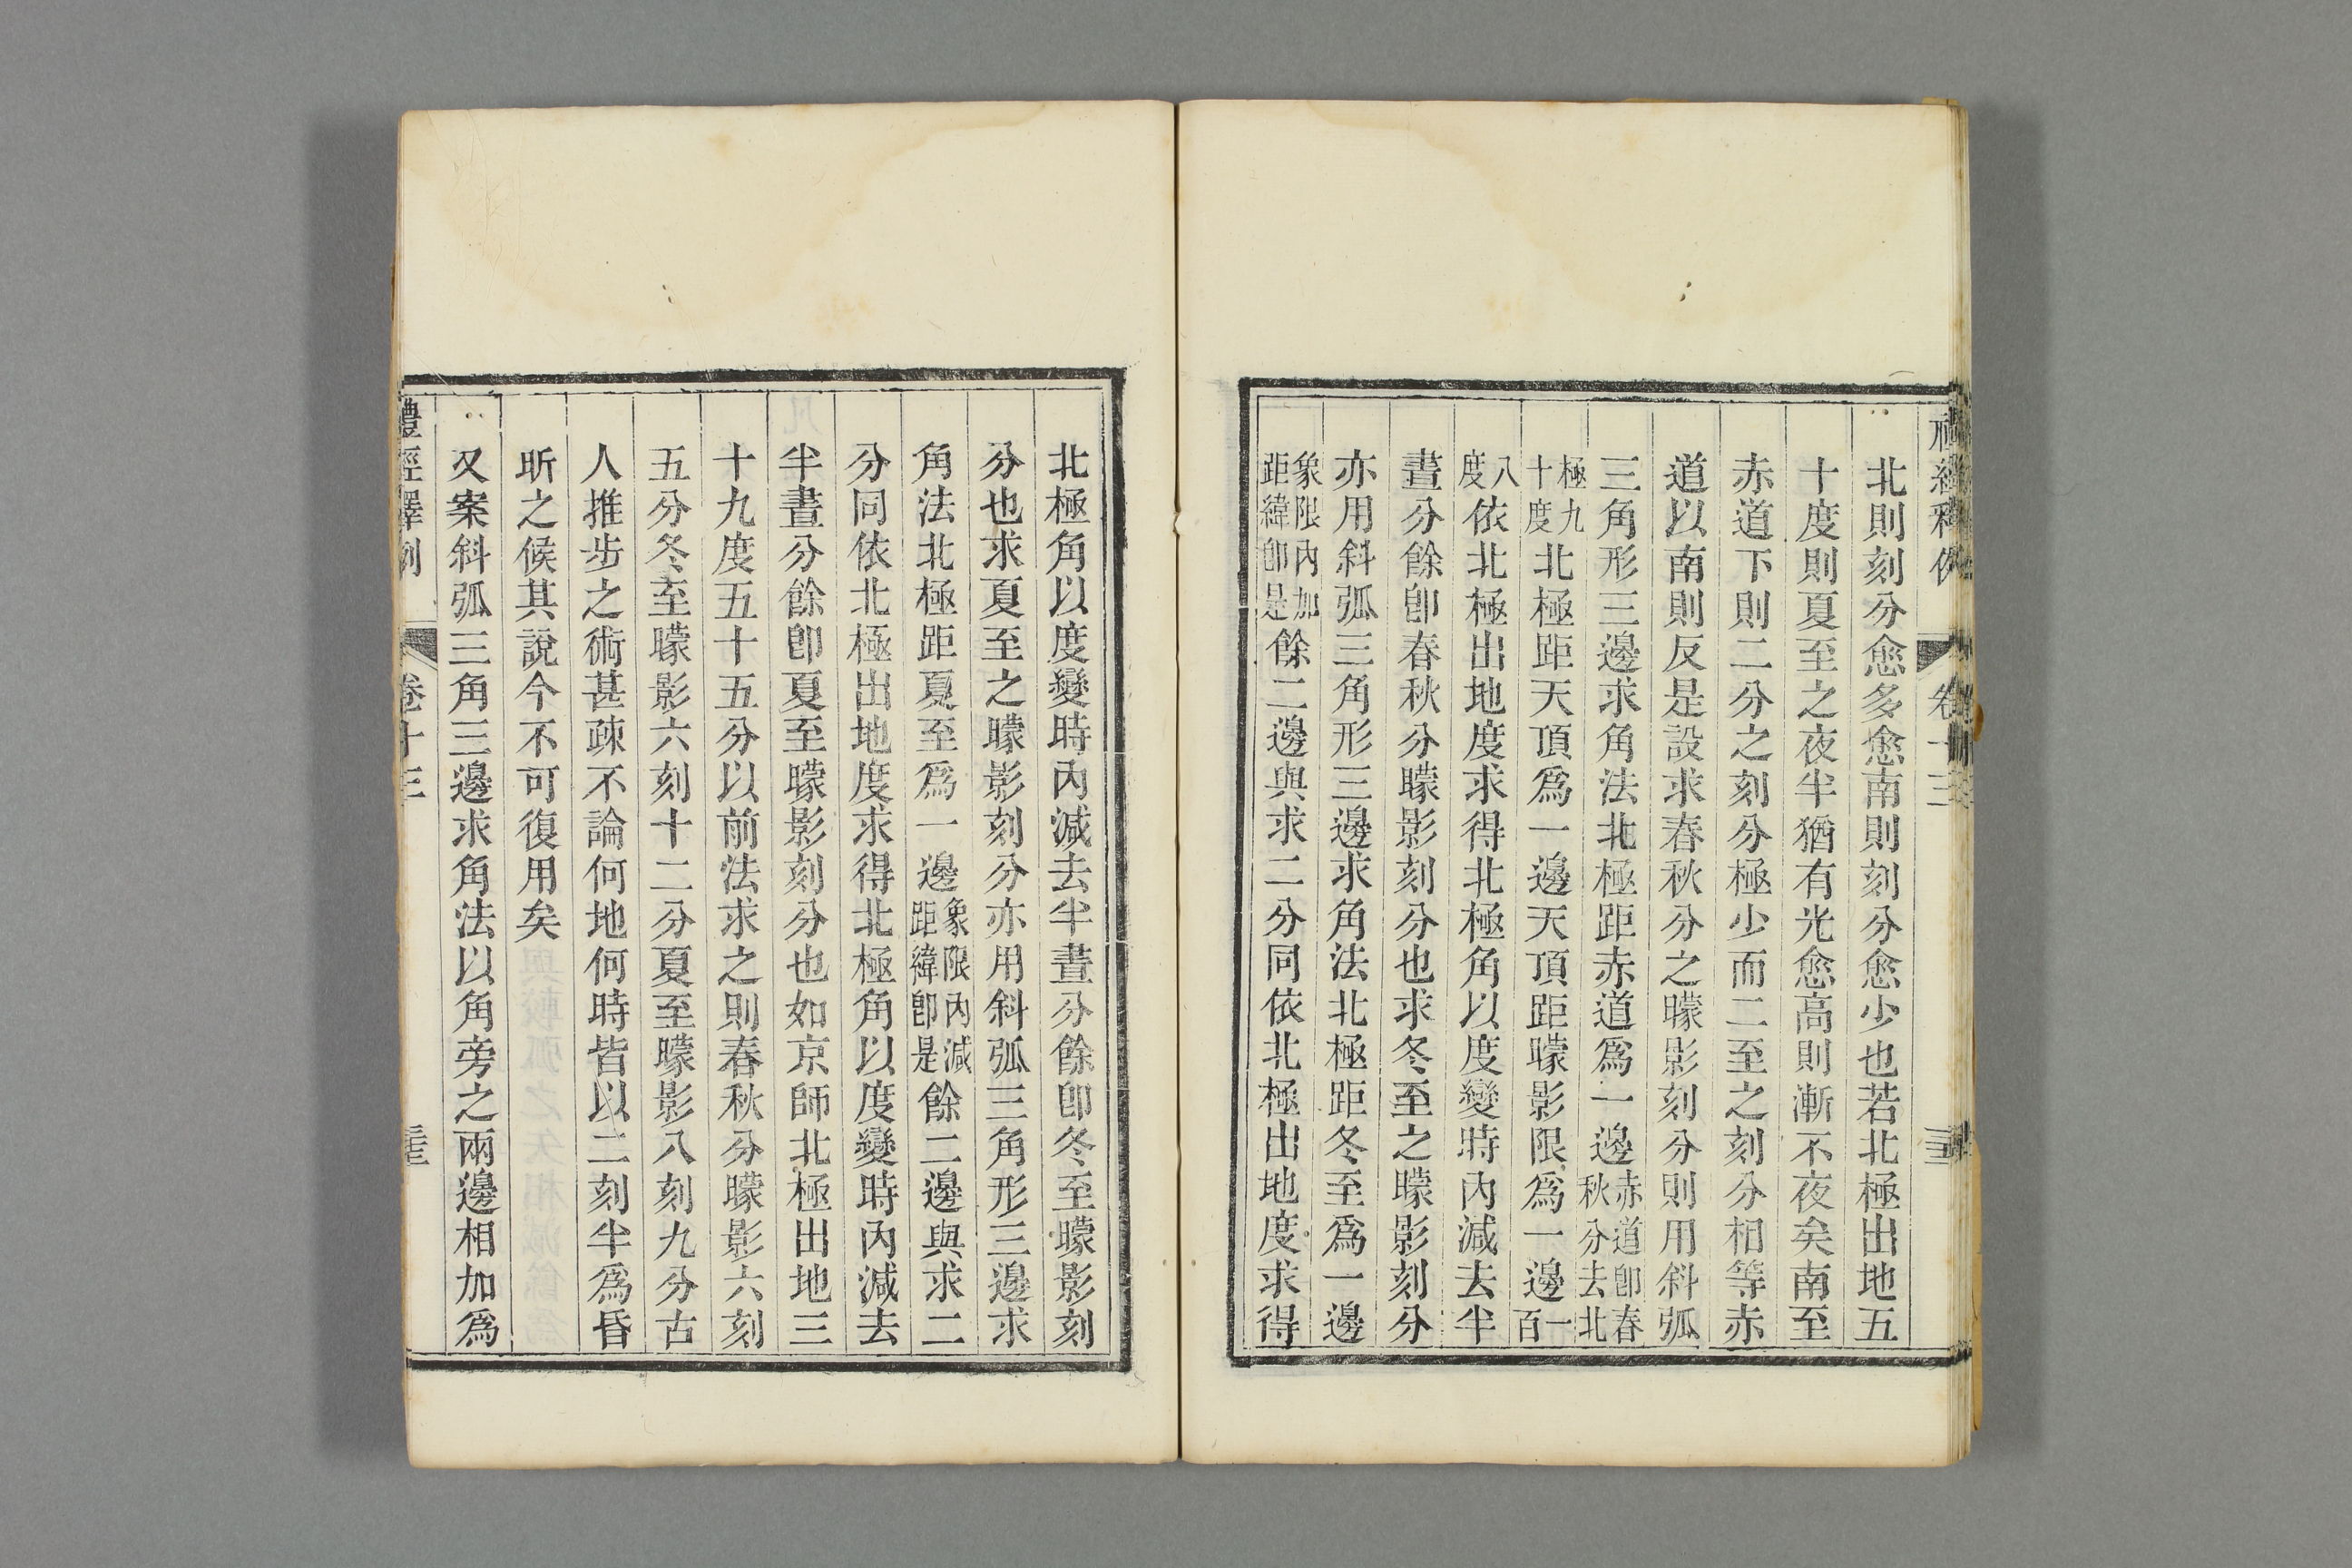 北則刻分愈多愈南則刻分愈少也若北極出地五
十度則夏至之夜半猶有光愈高則漸不夜矣南至
赤道下則二分之刻分極少而二至之刻分相等赤
道以南則反是設求春秋分之矇影刻分則用斜弧
三角形三邊求角法北極距赤道爲一邊赤道卽春秋分去北
極九十度北極距天頂爲一邊天頂距矇影限爲一邊一百
八度依北極出地度求得北極角以度變時內減去半
晝分餘卽春秋分矇影刻分也求冬至之矇影刻分
亦用斜弧三角形三邊求角法北極距冬至爲一邊
象限內加距緯卽是餘二邊與求二分同依北極出地度求得
北極角以度變時內減去半晝分餘卽冬至矇影刻
分也求夏至之矇影刻分亦用斜弧三角形三邊求
角法北極距夏至爲一邊象限內減距緯卽是餘二邊與求二
分同依北極出地度求得北極角以度變時內減去
半晝分餘卽夏至矇影刻分也如京師北極出地三
十九度五十五分以前法求之則春秋分矇影六刻
五分冬至矇影六刻十二分夏至矇影八刻九分古
人推步之術甚疎不論何地何時皆以二刻半爲昏
昕之候其說今不可復用矣
又案斜弧三角三邊求角法以角旁之兩邊相加爲
禮經釋例 卷十三